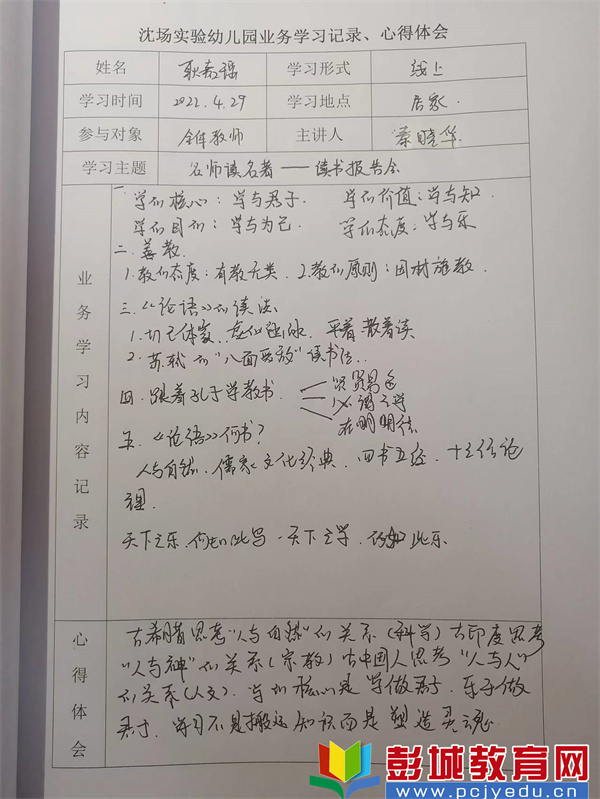 沈场实验幼儿园业务学习记录、心得体会
姓名 学习形式 线上
学习时间 2022.4.29 学习地点 居家.
参与对象 全体教师 主讲人 秦晓华
学习主题 名师读名著——读书报告会
业务学习内容记录
一. 学的核心:学与君子. 学的价值:学与知.
学的目的:学与为己. 学的态度:学与乐
二. 善教.
1.教的态度:有教无类. 2.教的原则:因材施教.
三.《论语》的读法
1.切己体察、 平着散着读
2. 苏轼的“八面受敌”读书法.
四. 跟着孔子学教书. 贤贤易色
必谓之学
在明明德
五.《论语》何书?
人与自然. 儒家文化经典. 四书五经. 十三经
理.
天下之乐,何如此 天下之学. 此乐
心得体会
古希腊思考“人与自然”的关系(科学)古印度思考
“人与神”的关系(宗教)古中国人思考“人与人”
的关系(人文). 学的核心是学做君子. 乐于做
君子. 学习不是搬运知识而是塑造灵魂.
彭城教育网
www.pcjyedu.cn